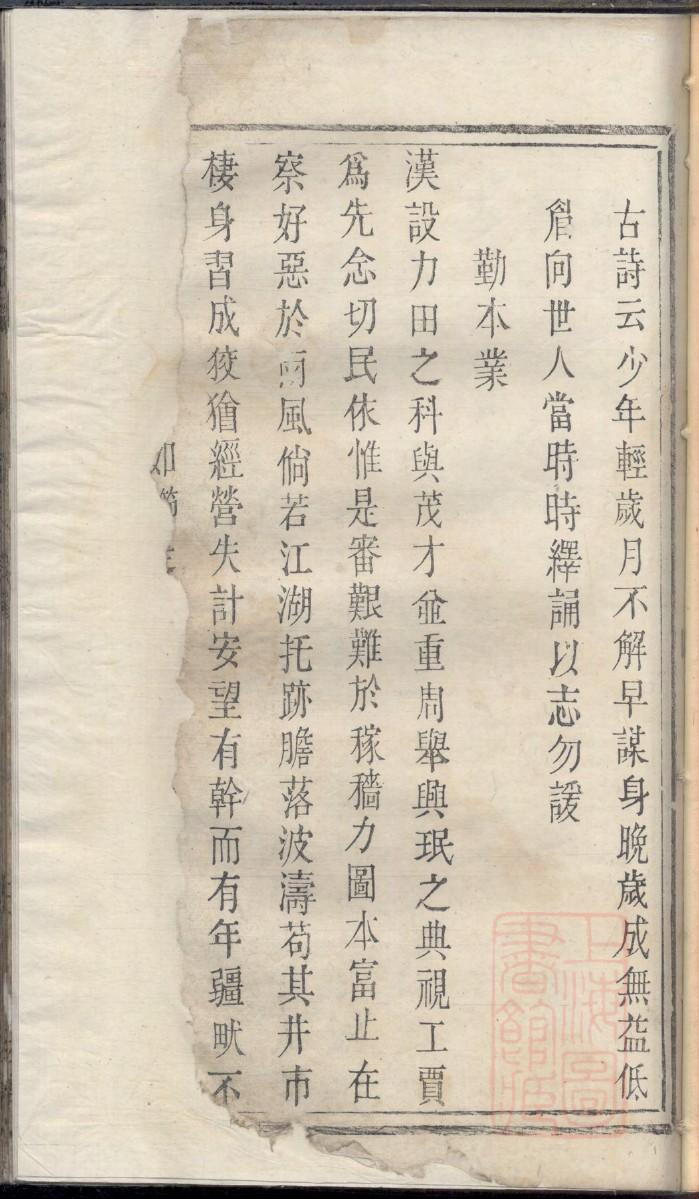 古詩云少年輕歲月不解早謀身晚歲成無益低
眉向世人當時時繹誦以志勿諼
勤本業
漢設力田之科與茂才並重周舉興珉之典視工賈
為先念切民依惟是審艱難於稼穡力圖本富止在
察好惡於雨風倘若江湖托跡膽落波濤苟其井市
棲身習成狡猶經營失計安望有幹而有年疆畎不
上海圖
書館藏